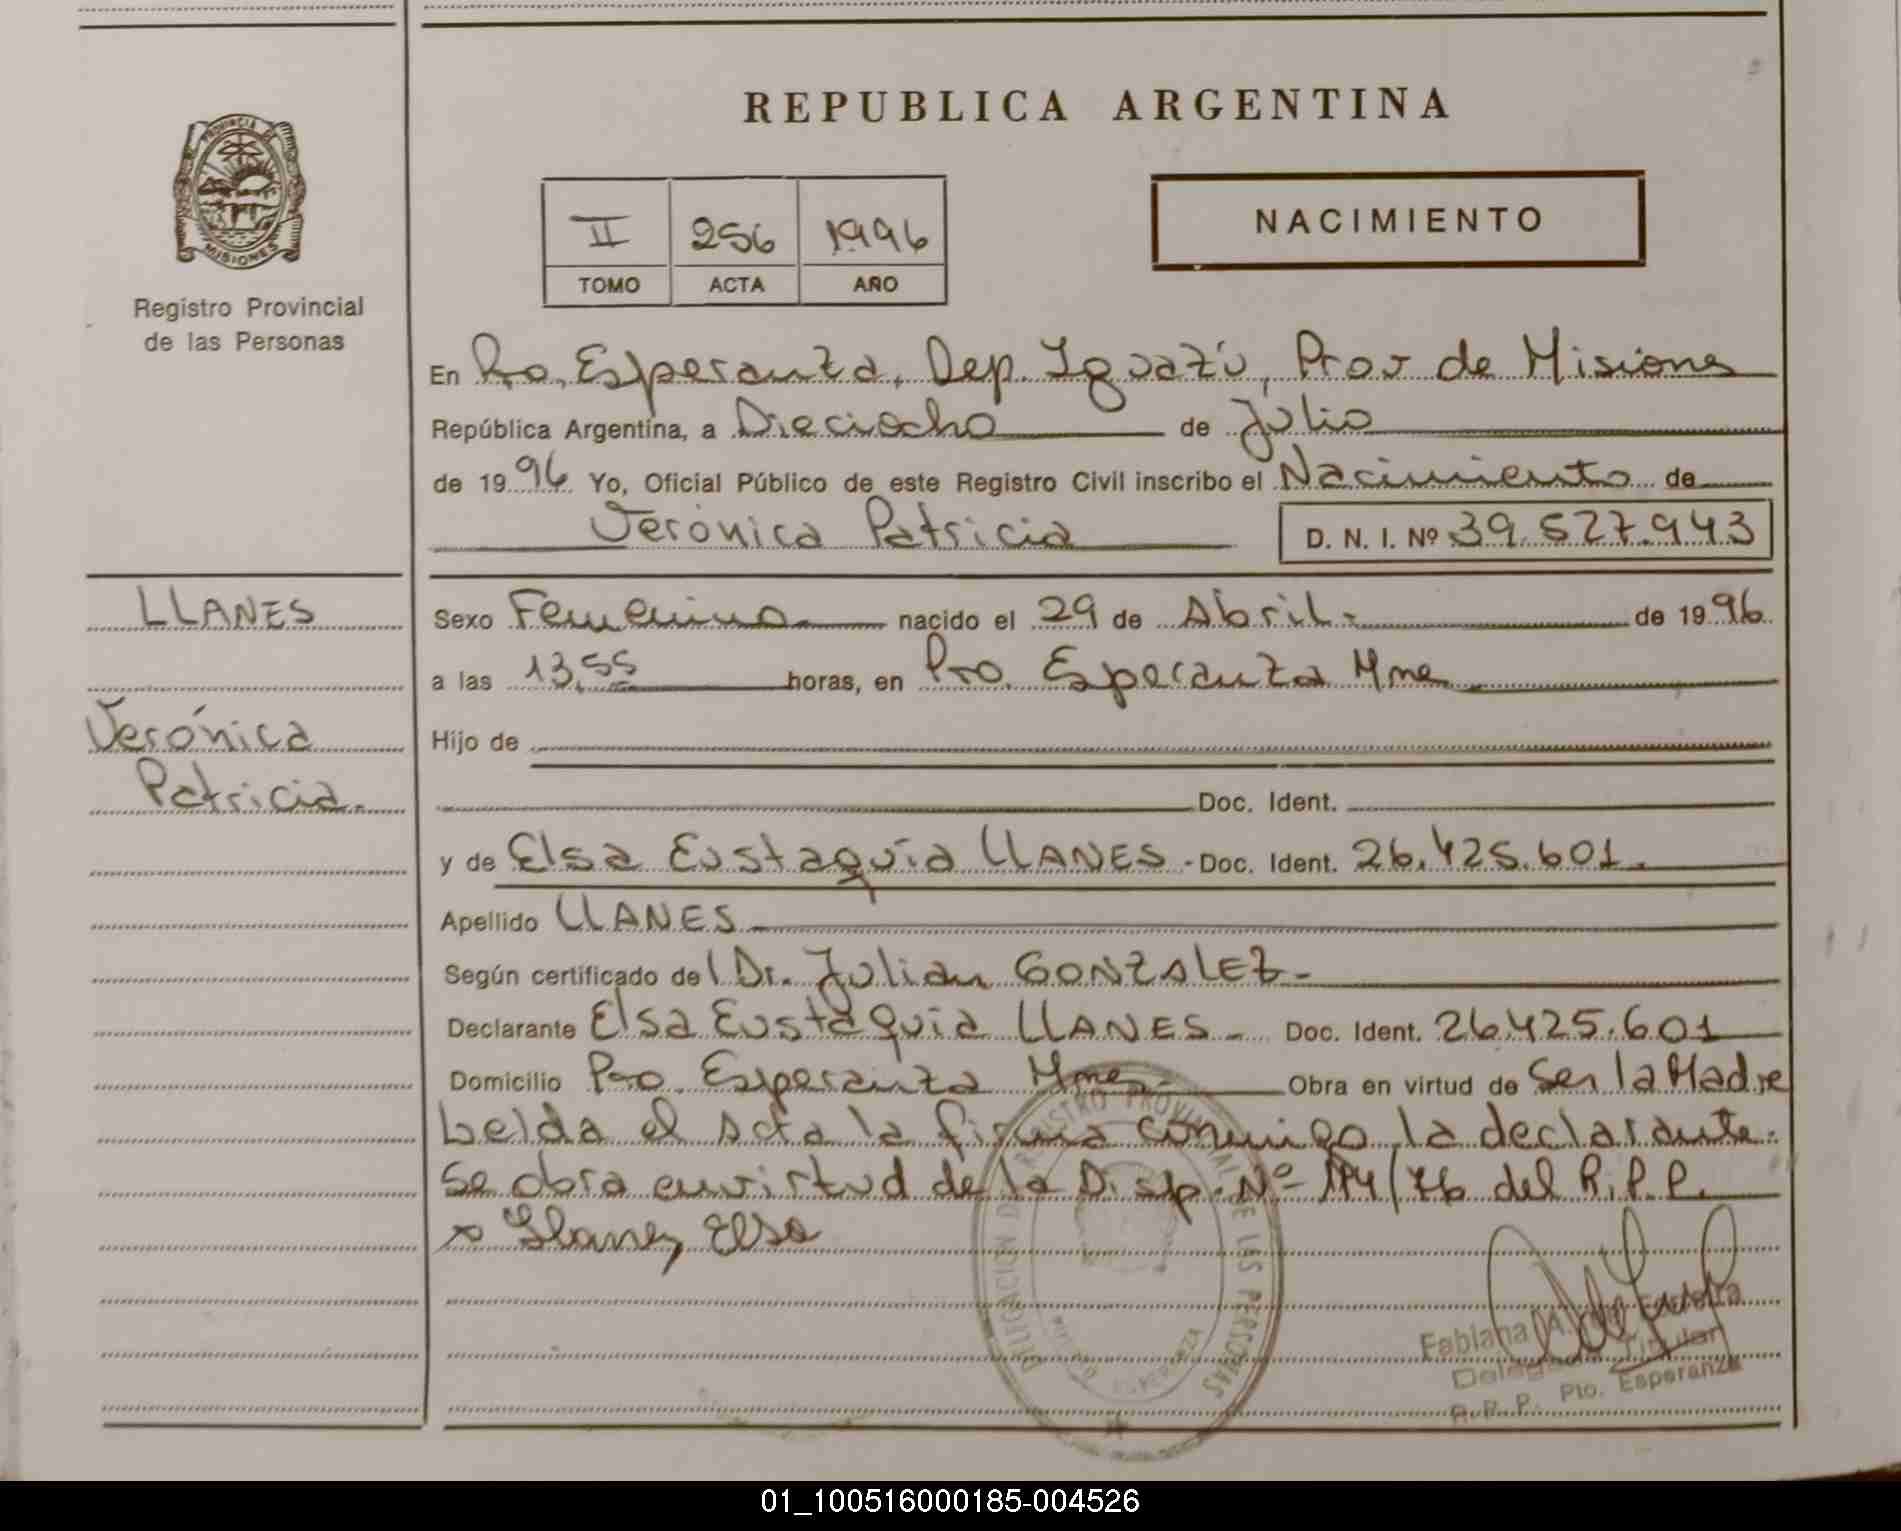 REPUBLICA ARGENTINA
PROVINCIA DE
MISIONES
Registro Provincial
de las Personas
II 256 1996
TOMO ACTA AÑO
NACIMIENTO
En Pto. Esperanza, Dep. Iguazú, Prov de Misiones
República Argentina, a Dieciocho de Julio
de 1996 Yo, Oficial Público de este Registro Civil inscribo el Nacimiento de
Verónica Patricia D. N. I. Nº 39.527.943
LLANES
Verónica
Patricia.
Sexo Femenino nacido el 29 de Abril.- de 1996
a las 13,55 horas, en Pto. Esperanza Mnes
Hijo de
Doc. Ident.
y de Elsa Eustaquia LLANES - Doc. Ident. 26.425.601.
Apellido LLANES
Según certificado del Dr. Julian GONZALEZ-
Declarante Elsa Eustaquia LLANES - Doc. Ident. 26.425.601
Domicilio Pto. Esperanza Mnes.- Obra en virtud de Ser la Madre
Leida el Acta la firma conmigo la declarante.
Se obra en virtud de la Disp. Nº 174/76 del R.P.P.
x Llanes, Elsa
DELEGACION DE REGISTRO PROVINCIAL DE LAS PERSONAS
PUERTO ESPERANZA
Fabiana A.
Delegada Titular
R. P. P. Pto. Esperanza
01_100516000185-004526